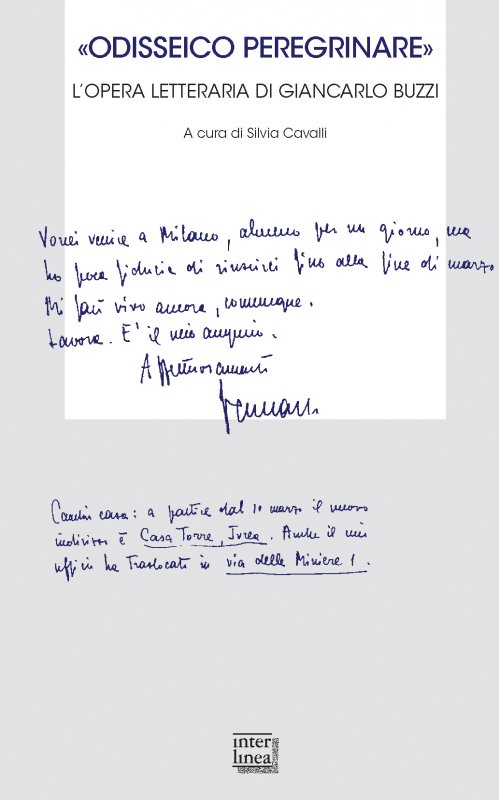 «ODISSEICO PEREGRINARE»
L'OPERA LETTERARIA DI GIANCARLO BUZZI
A cura di Silvia Cavalli
Vorrei venire a Milano, almeno per un giorno, ma
ho poca fiducia di riuscirci fino alla fine di marzo
Mi farò vivo ancora, comunque.
Lavora. E' il mio augurio.
Affettuosamente
Cambio casa: a partire dal 10 marzo il nuovo
indirizzo è Casa Torre, Ivrea. Anche il mio
ufficio ha traslocato in via delle Miniere 1.
inter
linea